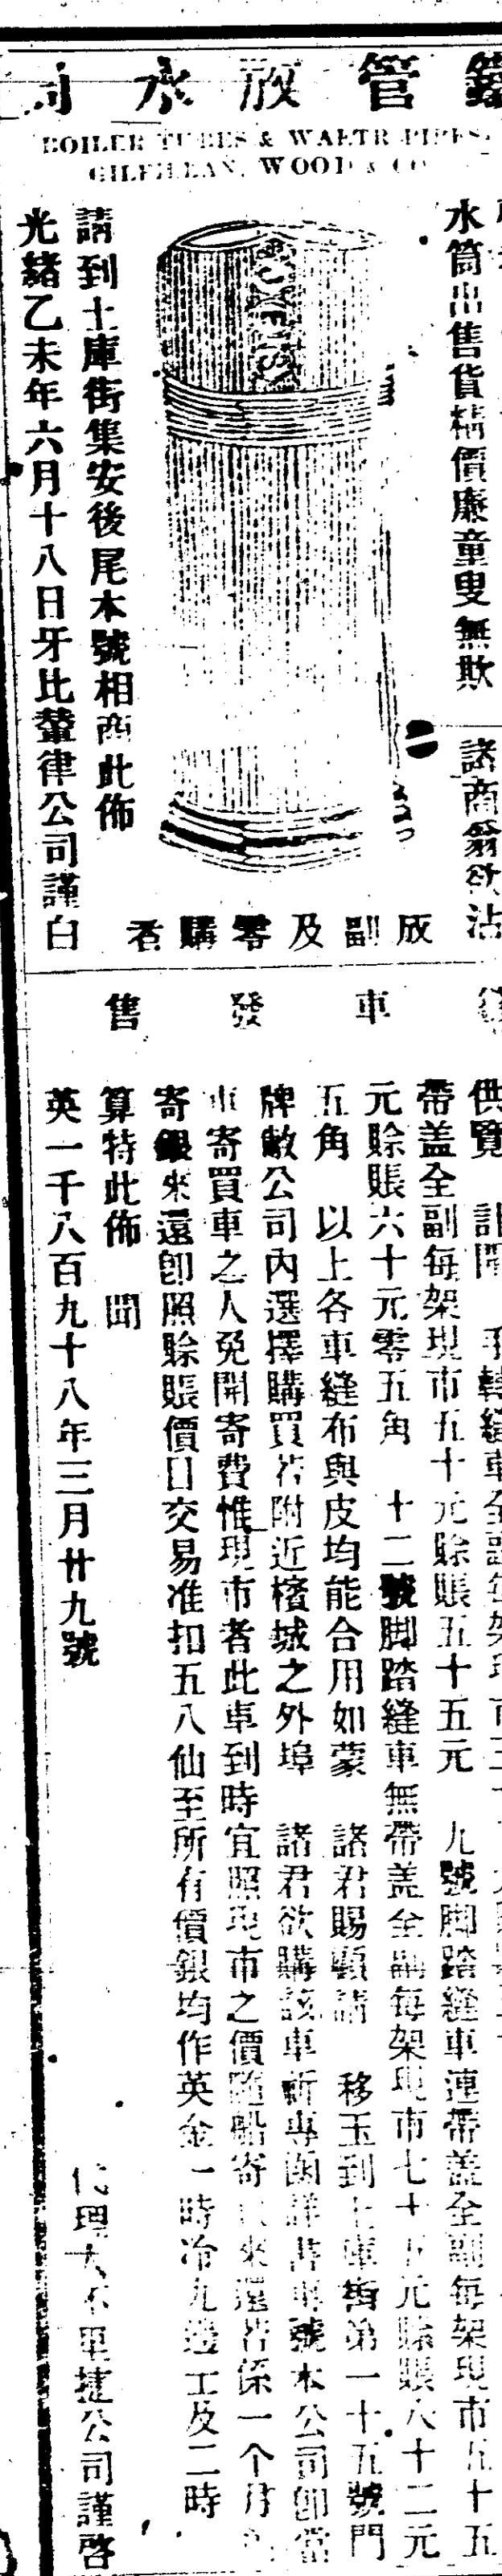 鐵管放水筒
BOILER TUBES & WAETR PIPES.
GILFILLAN, WOOD & CO
水筒出售貨精價廉童叟無欺 諸商翁欲沾
成副及零購者
請到土庫街集安後尾本號相酌此佈
光緒乙未年六月十八日牙比蘭律公司謹白
車發售
供覽 計開 手轉縫車全副每架現市三十
帶盖全副每架現市五十元賒賬五十五元 九號脚踏縫車連帶盖全副每架現市五十五
元賒賬六十元零五角 十二號脚踏縫車無帶盖全副每架現市七十五元賒賬八十二元
五角 以上各車縫布與皮均能合用如蒙 諸君賜顧請 移玉到土庫街第一十五號門
牌敝公司內選擇購買若附近檳城之外埠 諸君欲購該車祈專函詳書車號本公司即當
車寄買車之人免開寄費惟現市者此車到時宜照現市之價隨船寄 來還若係一个月
寄銀來還即照賒賬價目交易准扣五八仙至所有價銀均作英金一時冷九邊工及二時
算特此佈 聞
英一千八百九十八年三月廿九號
代理 公司謹啓